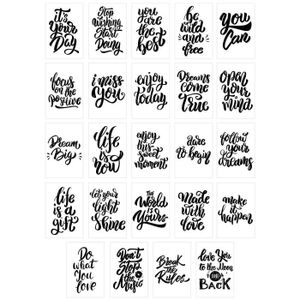 it's
Your
Day
Stop
wishing
Start
Doing
you
are
the
best
be
wild
and
free
you
Can
focus
on
the
positive
i miss
you
enjoy
today
Dreams
come
True
open
your
mind
Dream
Big
life
is
now
enjoy
this
sweet
moment
dare
to begin
follow
your
dreams
life
is a
gift
let your
light
Shine
The
World
is
Yours
Made
with
love
make
it
happen
Do
what
You
love
Don't
Stop
the
Music
Break
the
Rules
love You
to the Moon
and
BACK